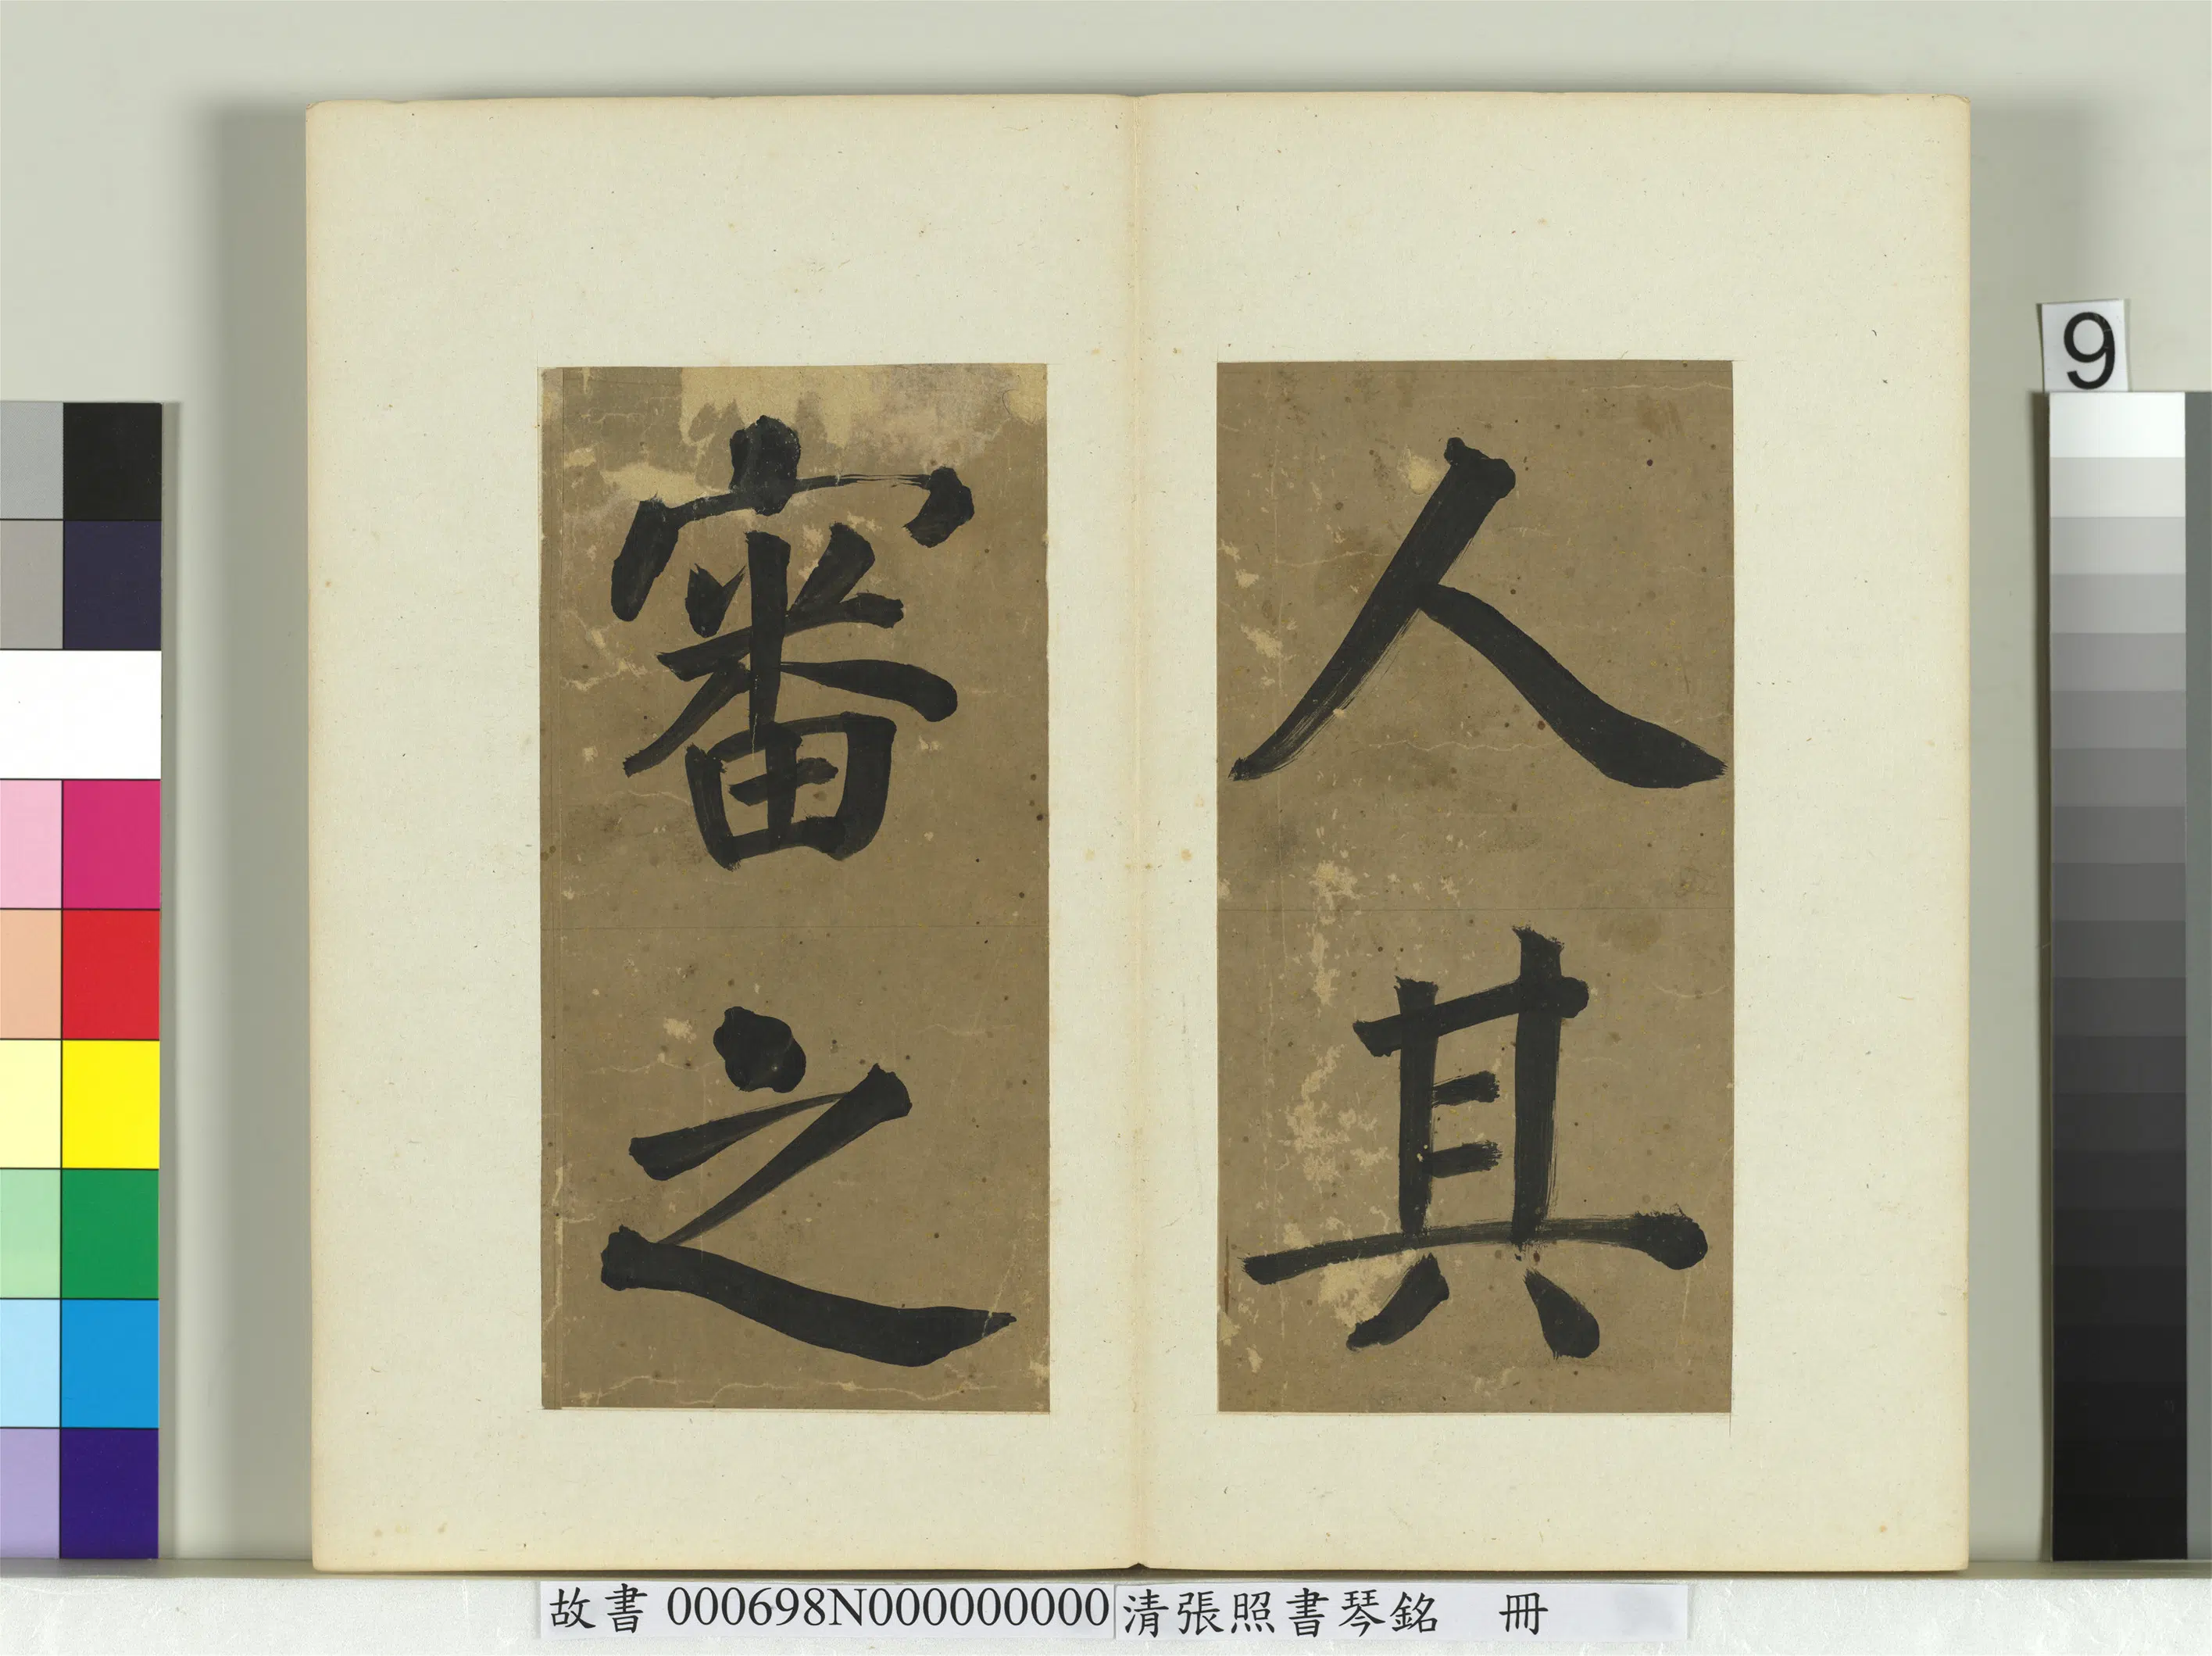 人其
審之
9
故書 000698N000000000 清張照書琴銘 冊